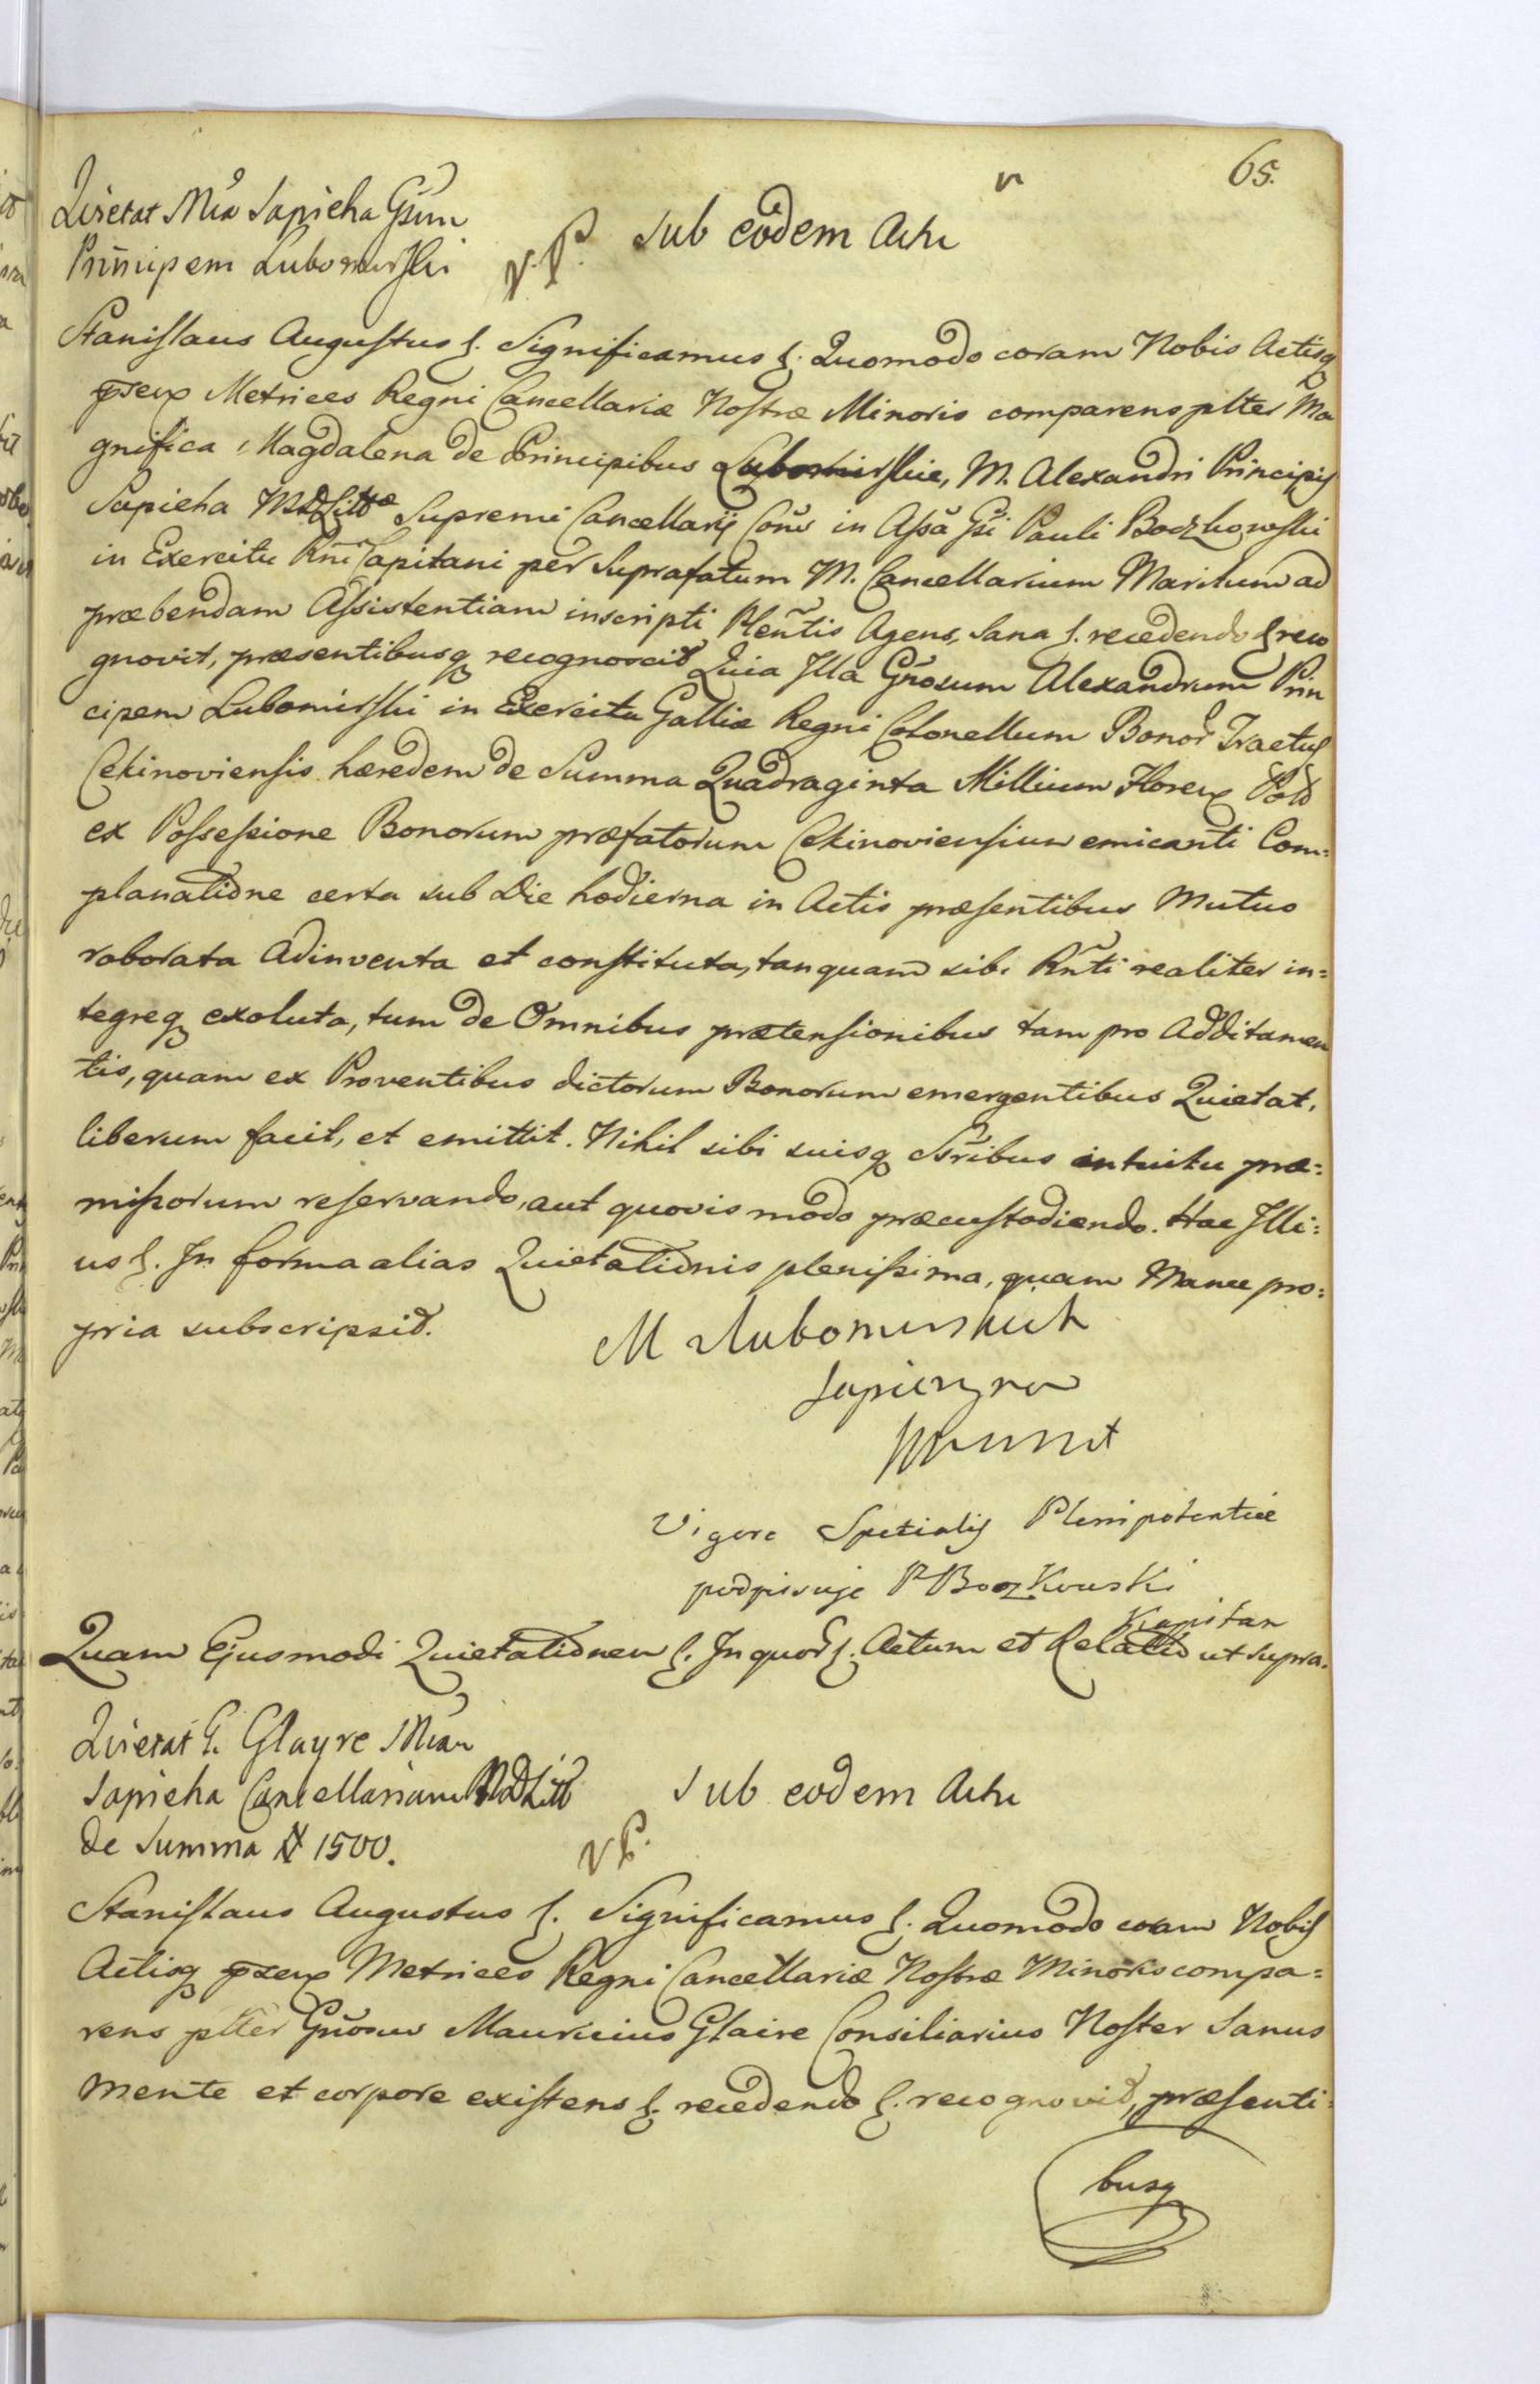 65.
Quietat Mca Sapieha Gsum
Principem Lubomirski
V. P. Sub eodem Actu
Stanislaus Augustus &. Significamus &. Quomodo coram Nobis Actisq
pseux Metrices Regni Cancellariæ Nostræ Minoris comparens plter Ma
gnifica Magdalena de Principibus Lubomirskie, M. Alexandri Principis
Sapieha M.D.Litt Supremi Cancellarij Coñs in Assã Gsi Pauli Boczkowski
in Exercitu Rni Capitani per Suprafatum M. Cancellarium Maritum ad
præbendam Assistentiam inscripti Pleñtis Agens, Sana &. recedendo & reco
gnovit, præsentibusq recognoscit Quia Illa Gñosum Alexandrum Prin
cipem Lubomirski in Exercitu Galliæ Regni Colonellum Bonor Tractus
Cekinoviensis hæredem de Summa Quadraginta Millium Floreux Pold
ex Possessione Bonorum præfatorum Cekinoviensium emicanti Com=
planatione certa sub Die hodierna in Actis præsentibus Mutuo
roborata Adinventa et constituta, tanquam sibi Rñti realiter in=
tegreq exoluta, tum de Omnibus prætensionibus tam pro Additamen
tis, quam ex Proventibus dictorum Bonorum emergentibus Quietat,
liberum facit, et emittit. Nihil sibi suisq Sribus intuitu præ=
missorum reservando, aut quovis modo præcustodiendo. Hac Illi=
us &. In forma alias Quietationis plenissima, quam Manu pro=
pria subscripsit.
M Lubomirskich
Sapiezyna
Vigore Spetialis Plenipotentiæ
podpisuje P Boczkowski
Kapitan
Quam Ejusmodi Quietationem &. In quor &. Actum et Relatio ut supra.
Quietat G. Glayre Mcam
Sapieha Cancellariam M.D.Litt
de Summa # 1500.
Sub eodem Actu
V P.
Stanislaus Augustus &. Significamus &. Quomodo coram Nobis
Actisq pseux Metrices Regni Cancellariæ Nostræ Minoris compa=
rens plter Gñosus Mauricius Glaire Consiliarius Noster Sanus
Mente et corpore existens &. recedendo &. recognovit, præsenti=
busq